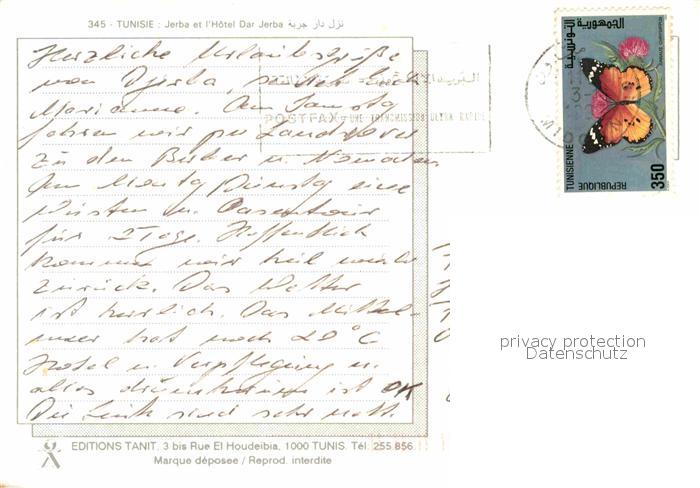 345 - TUNISIE : Jerba et l'Hôtel Dar Jerba نزل دار جربة
Herzliche Urlaubsgrüße
von Djerba,
Marianne. Am Samstag
fahren wir per Landrover
zu den Berber u. Nomaden
Am Montag Dienstag eine
Wüsten u. Oasentour
für 2 Tage. Hoffentlich
kommen wir heil wieder
zurück. Das Wetter
ist herrlich. Das Mittel-
meer hat noch 20°C
Hotel u. Verpflegung u.
alles drumherum ist OK
Die Leute sind sehr nett.
EDITIONS TANIT. 3 bis Rue El Houdeibia, 1000 TUNIS. Tél: 255.856
Marque déposee / Reprod. interdite
POSTFAX - UNE TRANSMISSION ULTRA RAPIDE
الجمهورية التونسية
REPUBLIQUE TUNISIENNE
350
privacy protection
Datenschutz